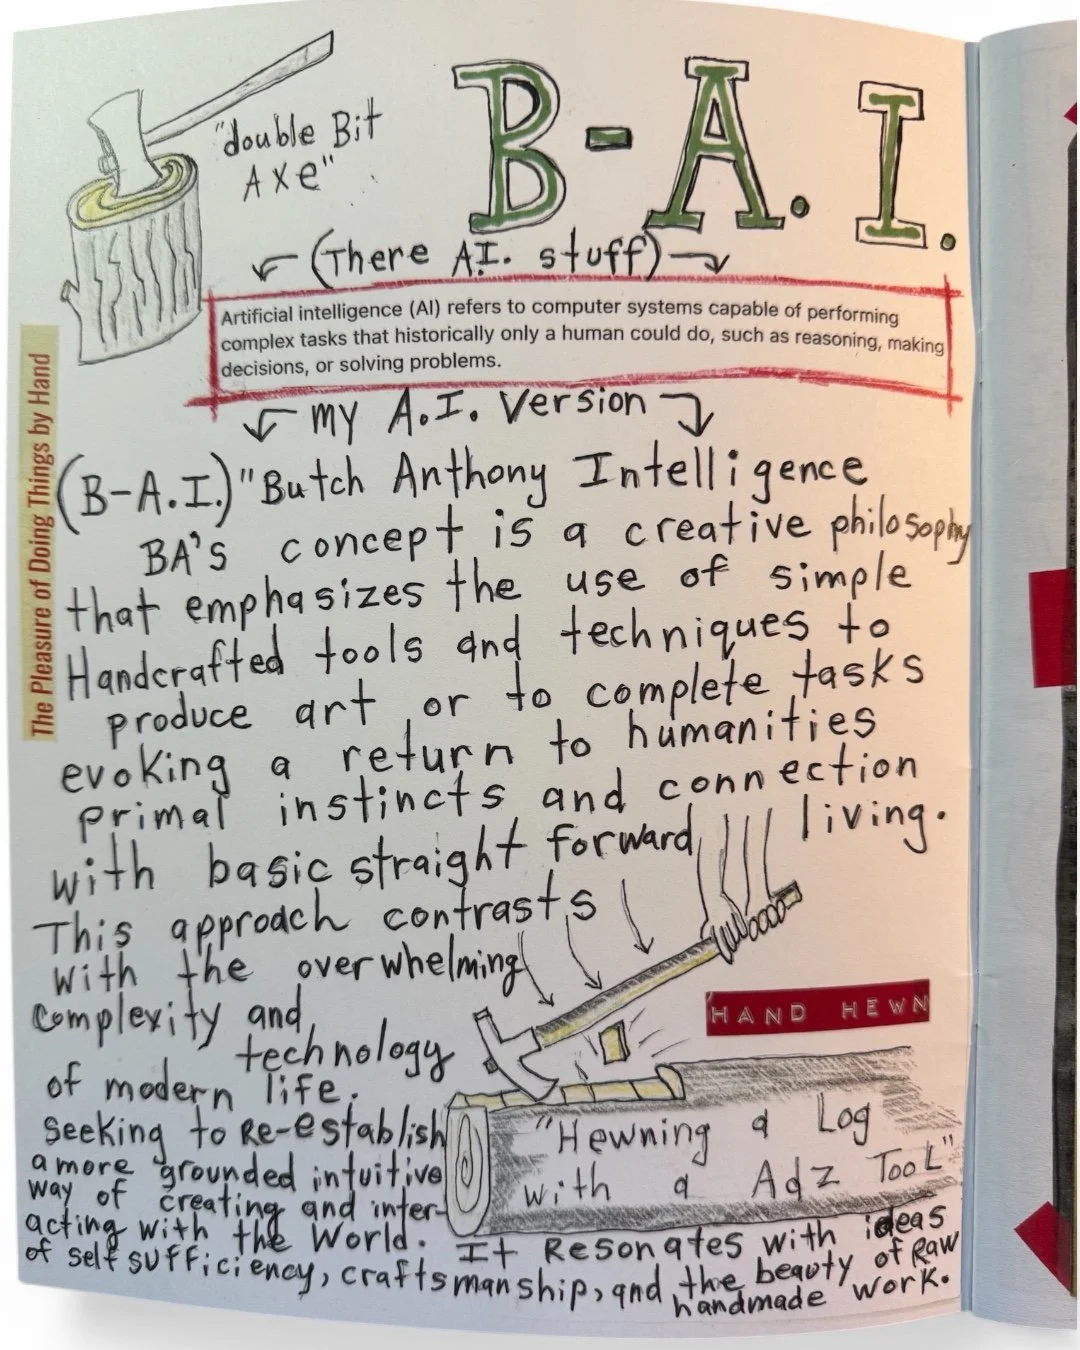 B-A.I.
"double Bit
Axe"
(There A.I. stuff)
Artificial intelligence (AI) refers to computer systems capable of performing
complex tasks that historically only a human could do, such as reasoning, making
decisions, or solving problems.
my A.I. version
The Pleasure of Doing Things by Hand
(B-A.I.) "Butch Anthony Intelligence
BA's concept is a creative philosophy
that emphasizes the use of simple
Handcrafted tools and techniques to
produce art or to complete tasks
evoking a return to humanities
primal instincts and connection
with basic straight forward living.
This approach contrasts
with the overwhelming
complexity and
technology
of modern life.
seeking to Re-establish
a more grounded intuitive
way of creating and inter-
acting with the World.
It Resonates with ideas
of self sufficiency, craftsmanship, and the beauty of Raw
handmade work.
HAND HEWN
"Hewning a Log
with a Adz TooL"